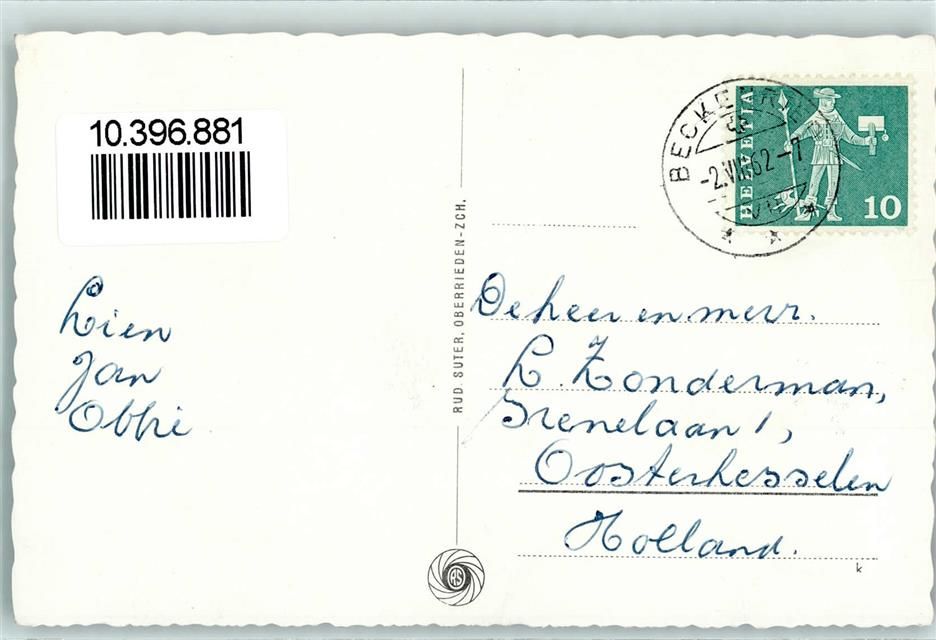 10.396.881
Lien
Jan
Obbie
RUD. SUTER, OBERRIEDEN-ZCH.
RS
HELVETIA
10
-2.VIII.62-7
De heer en mevr.
L. Zonderman,
Irenelaan 1,
Oosterhesselen
Holland.
k